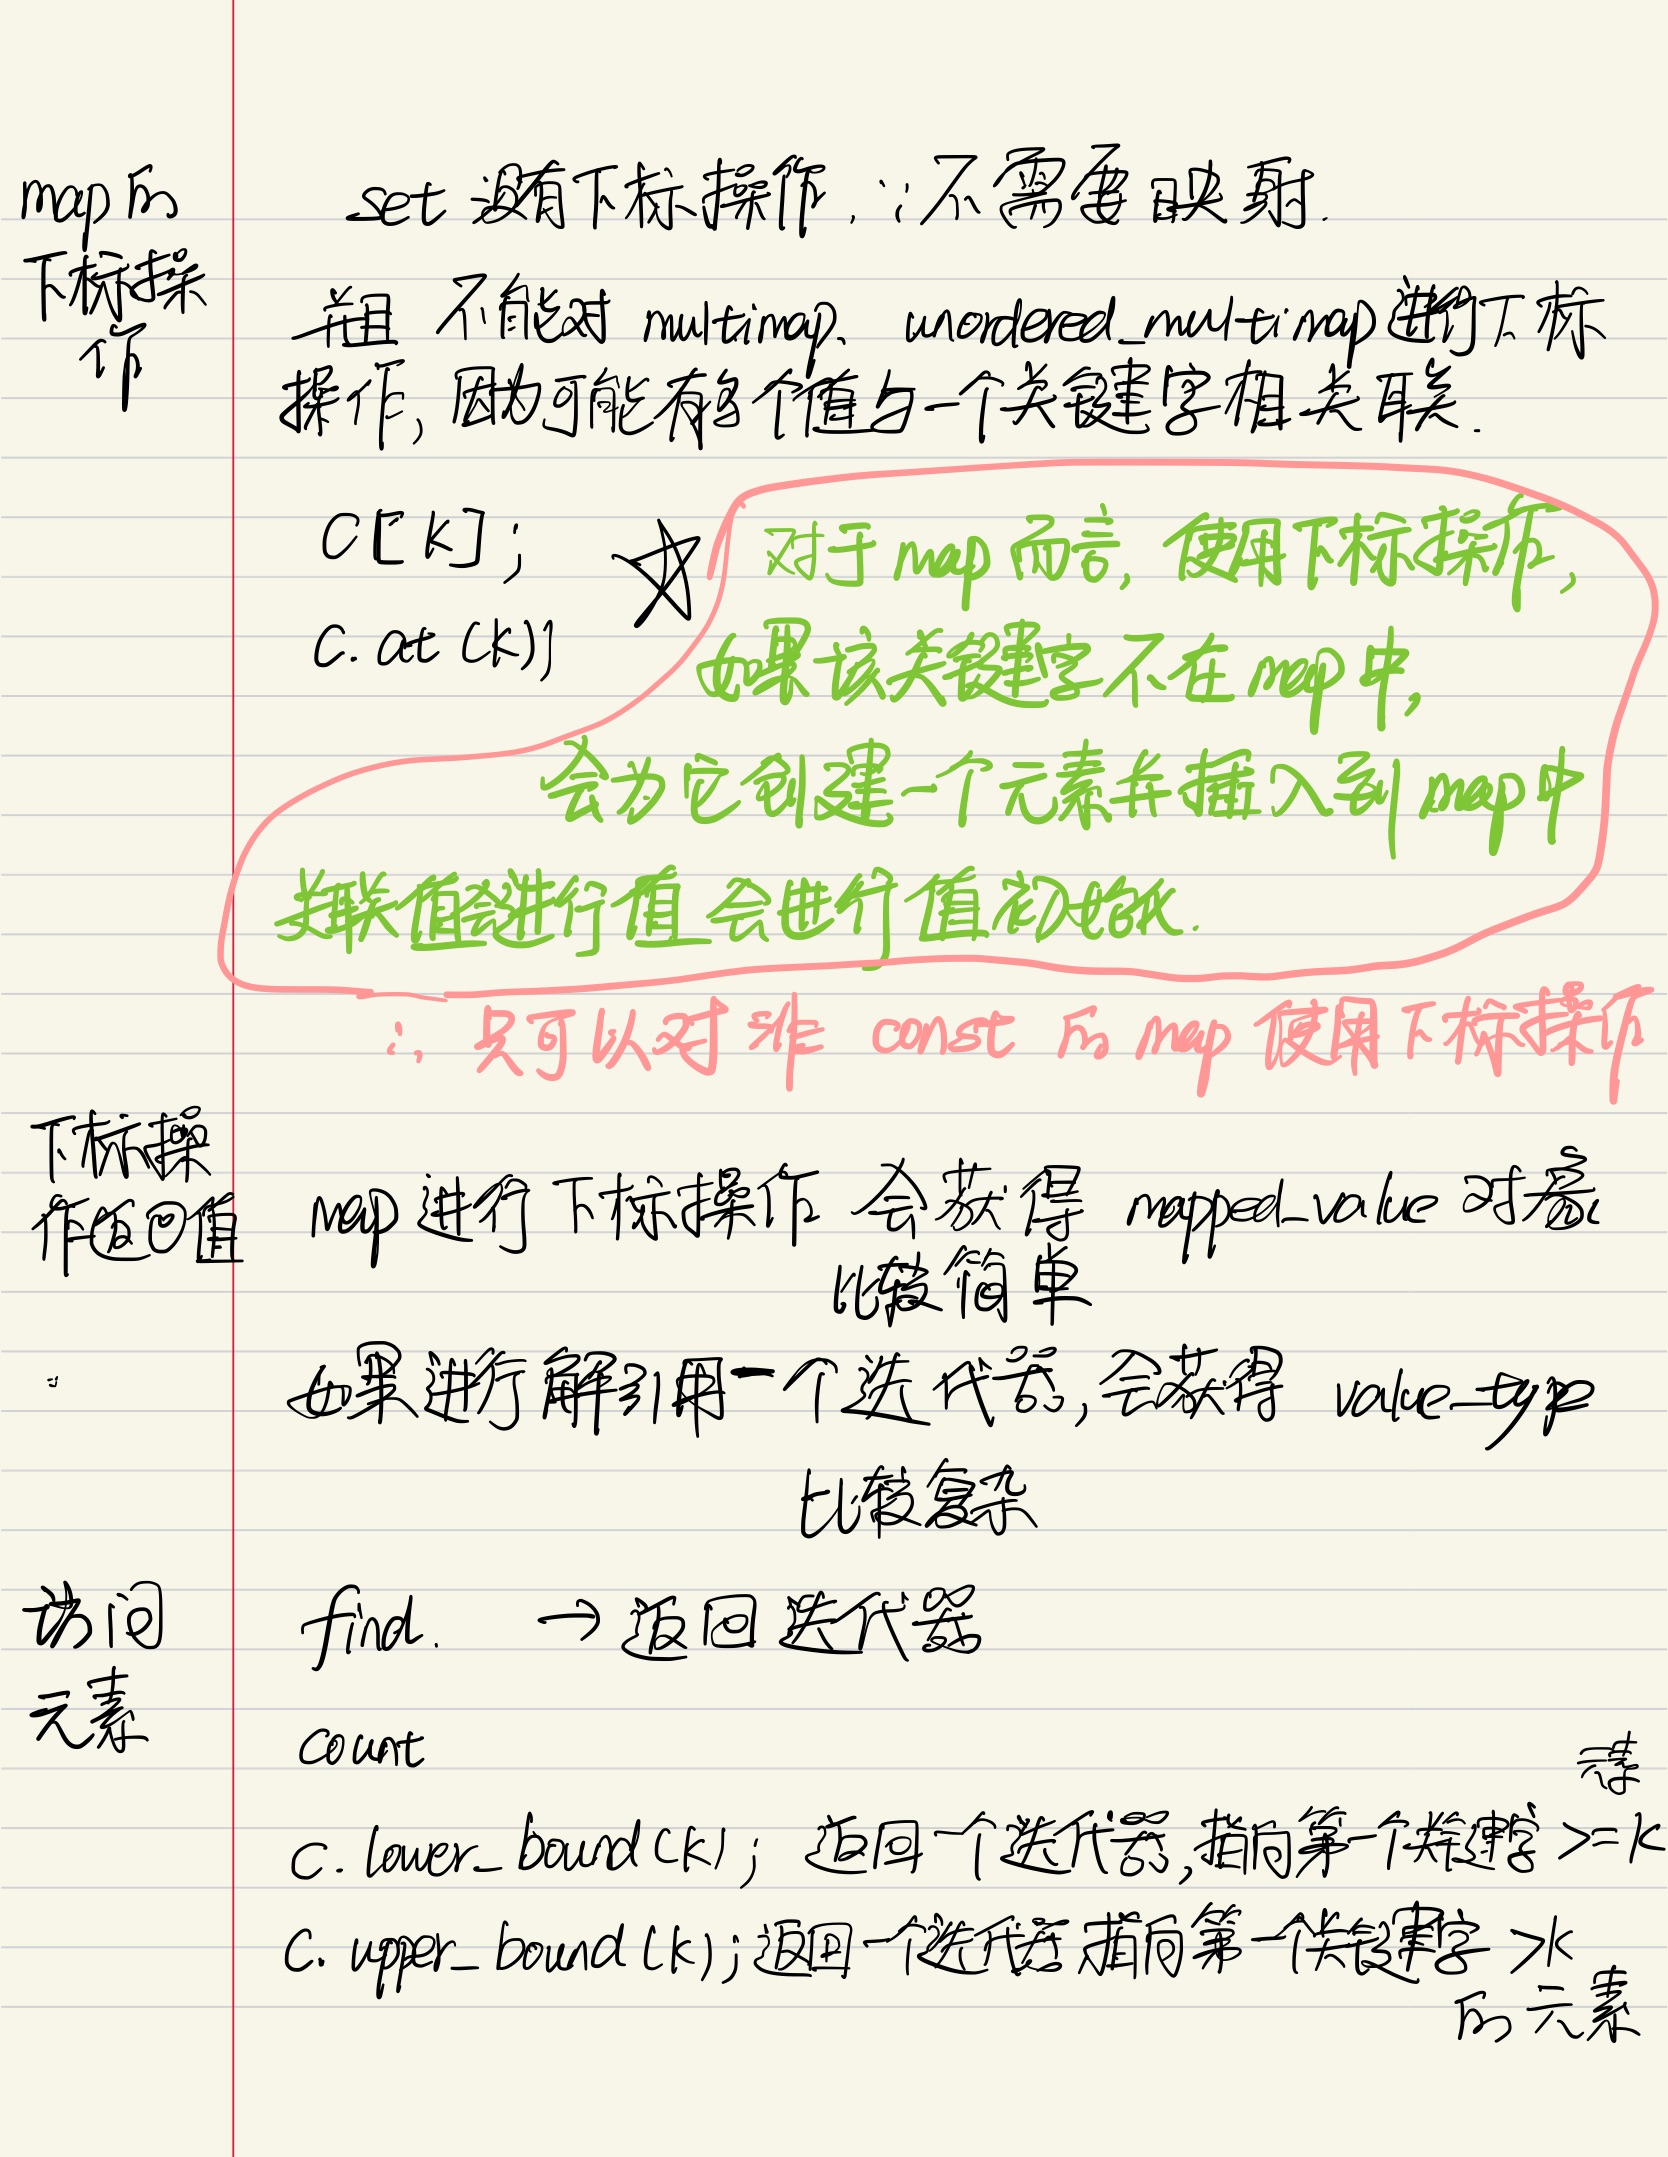 map的
下标操
作
set 没有下标操作, ∵不需要映射.
并且 不能对 multimap、unordered_multimap进行下标
操作, 因为可能有多个值与一个关键字相关联.
C[k];
C.at(k);
☆
对于map而言, 使用下标操作,
如果该关键字不在map中,
会为它创建一个元素并插入到map中
关联值会进行值 会进行值初始化.
∴ 只可以对非 const 的 map 使用下标操作
下标操
作返回值
map进行下标操作 会获得 mapped_value 对象
比较简单
如果进行解引用一个迭代器, 会获得 value_type
比较复杂
访问
元素
find. → 返回迭代器
count
元素
c.lower_bound(k); 返回一个迭代器,指向第一个关键字>=k
C.upper_bound(k);返回一个迭代器 指向第一个关键字 >k
的元素